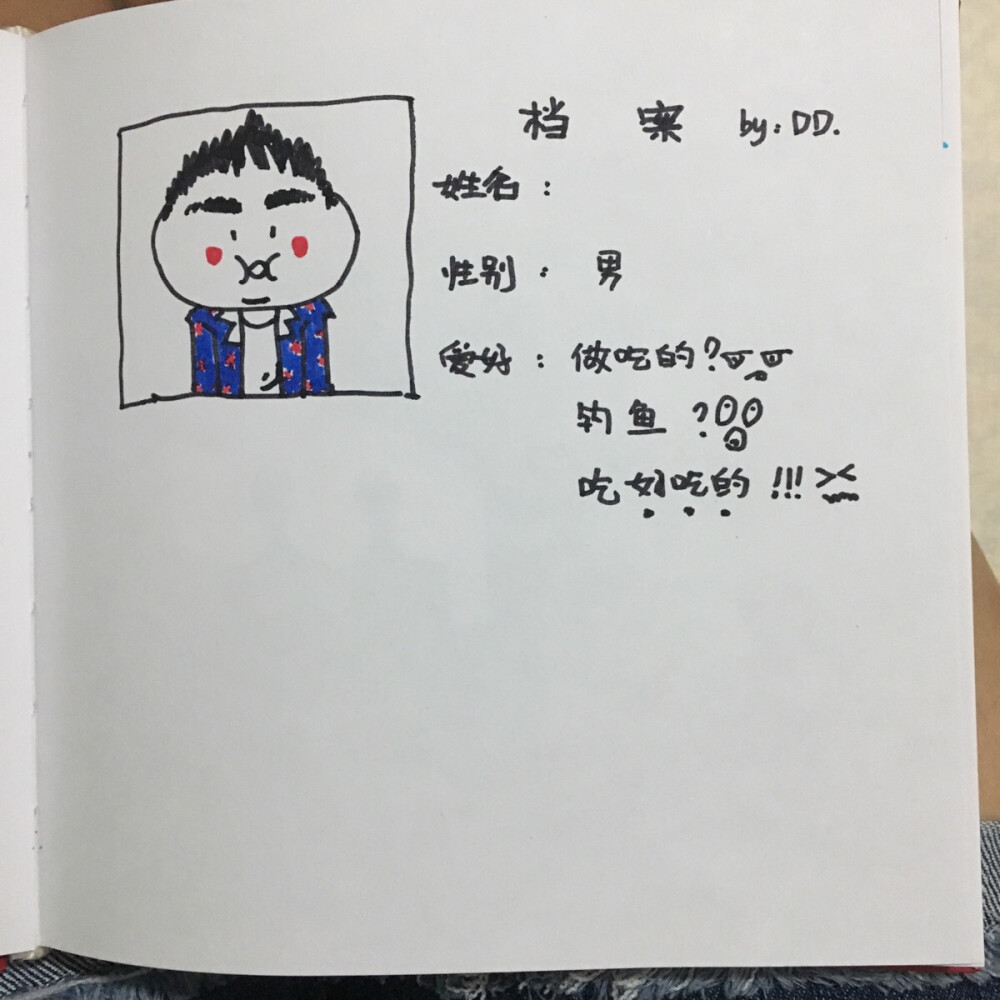 档 案 by: DD.
姓名：
性别： 男
爱好： 做吃的?
钓鱼?
吃好吃的!!!